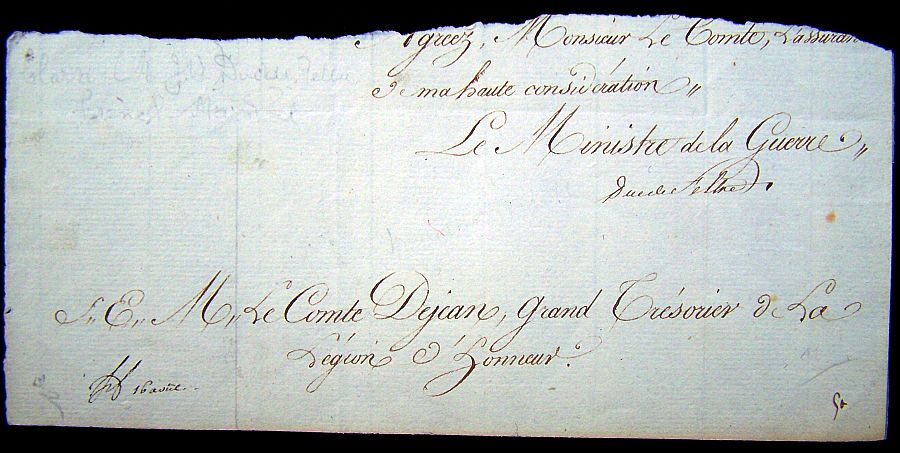 Agréez, Monsieur Le Comte, L'assuran
de ma haute considération „
Le Ministre de la Guerre „
Duc de Feltre
S. E. M. Le Comte Dejean, Grand Trésorier de La
Légion d'Honneur.
16 août